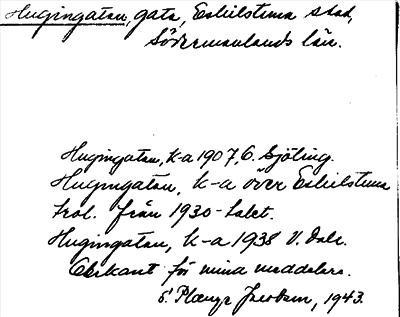 Hugingatan, gata, Eskilstuna stad,
Södermanlands län.
Hugingatan, k-a 1907, C. Sjöling.
Hugingatan, k-a över Eskilstuna
trol. från 1930-talet.
Hugingatan, k-a 1938 V. Dalr.
Obekant för mina meddelare.
1943.